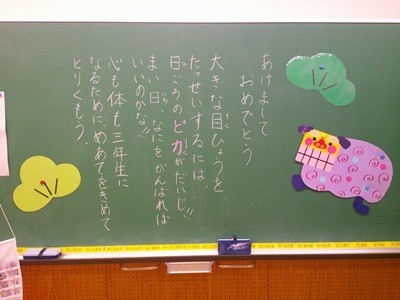 あけまして
おめでとう
大きな目ひょうを
たっせいするには、
日ごろのど力がだいじ!!
まい日、なにをがんばれば
いいのかな!!
心も体も三年生に
なるために、めあてをきめて
とりくもう。